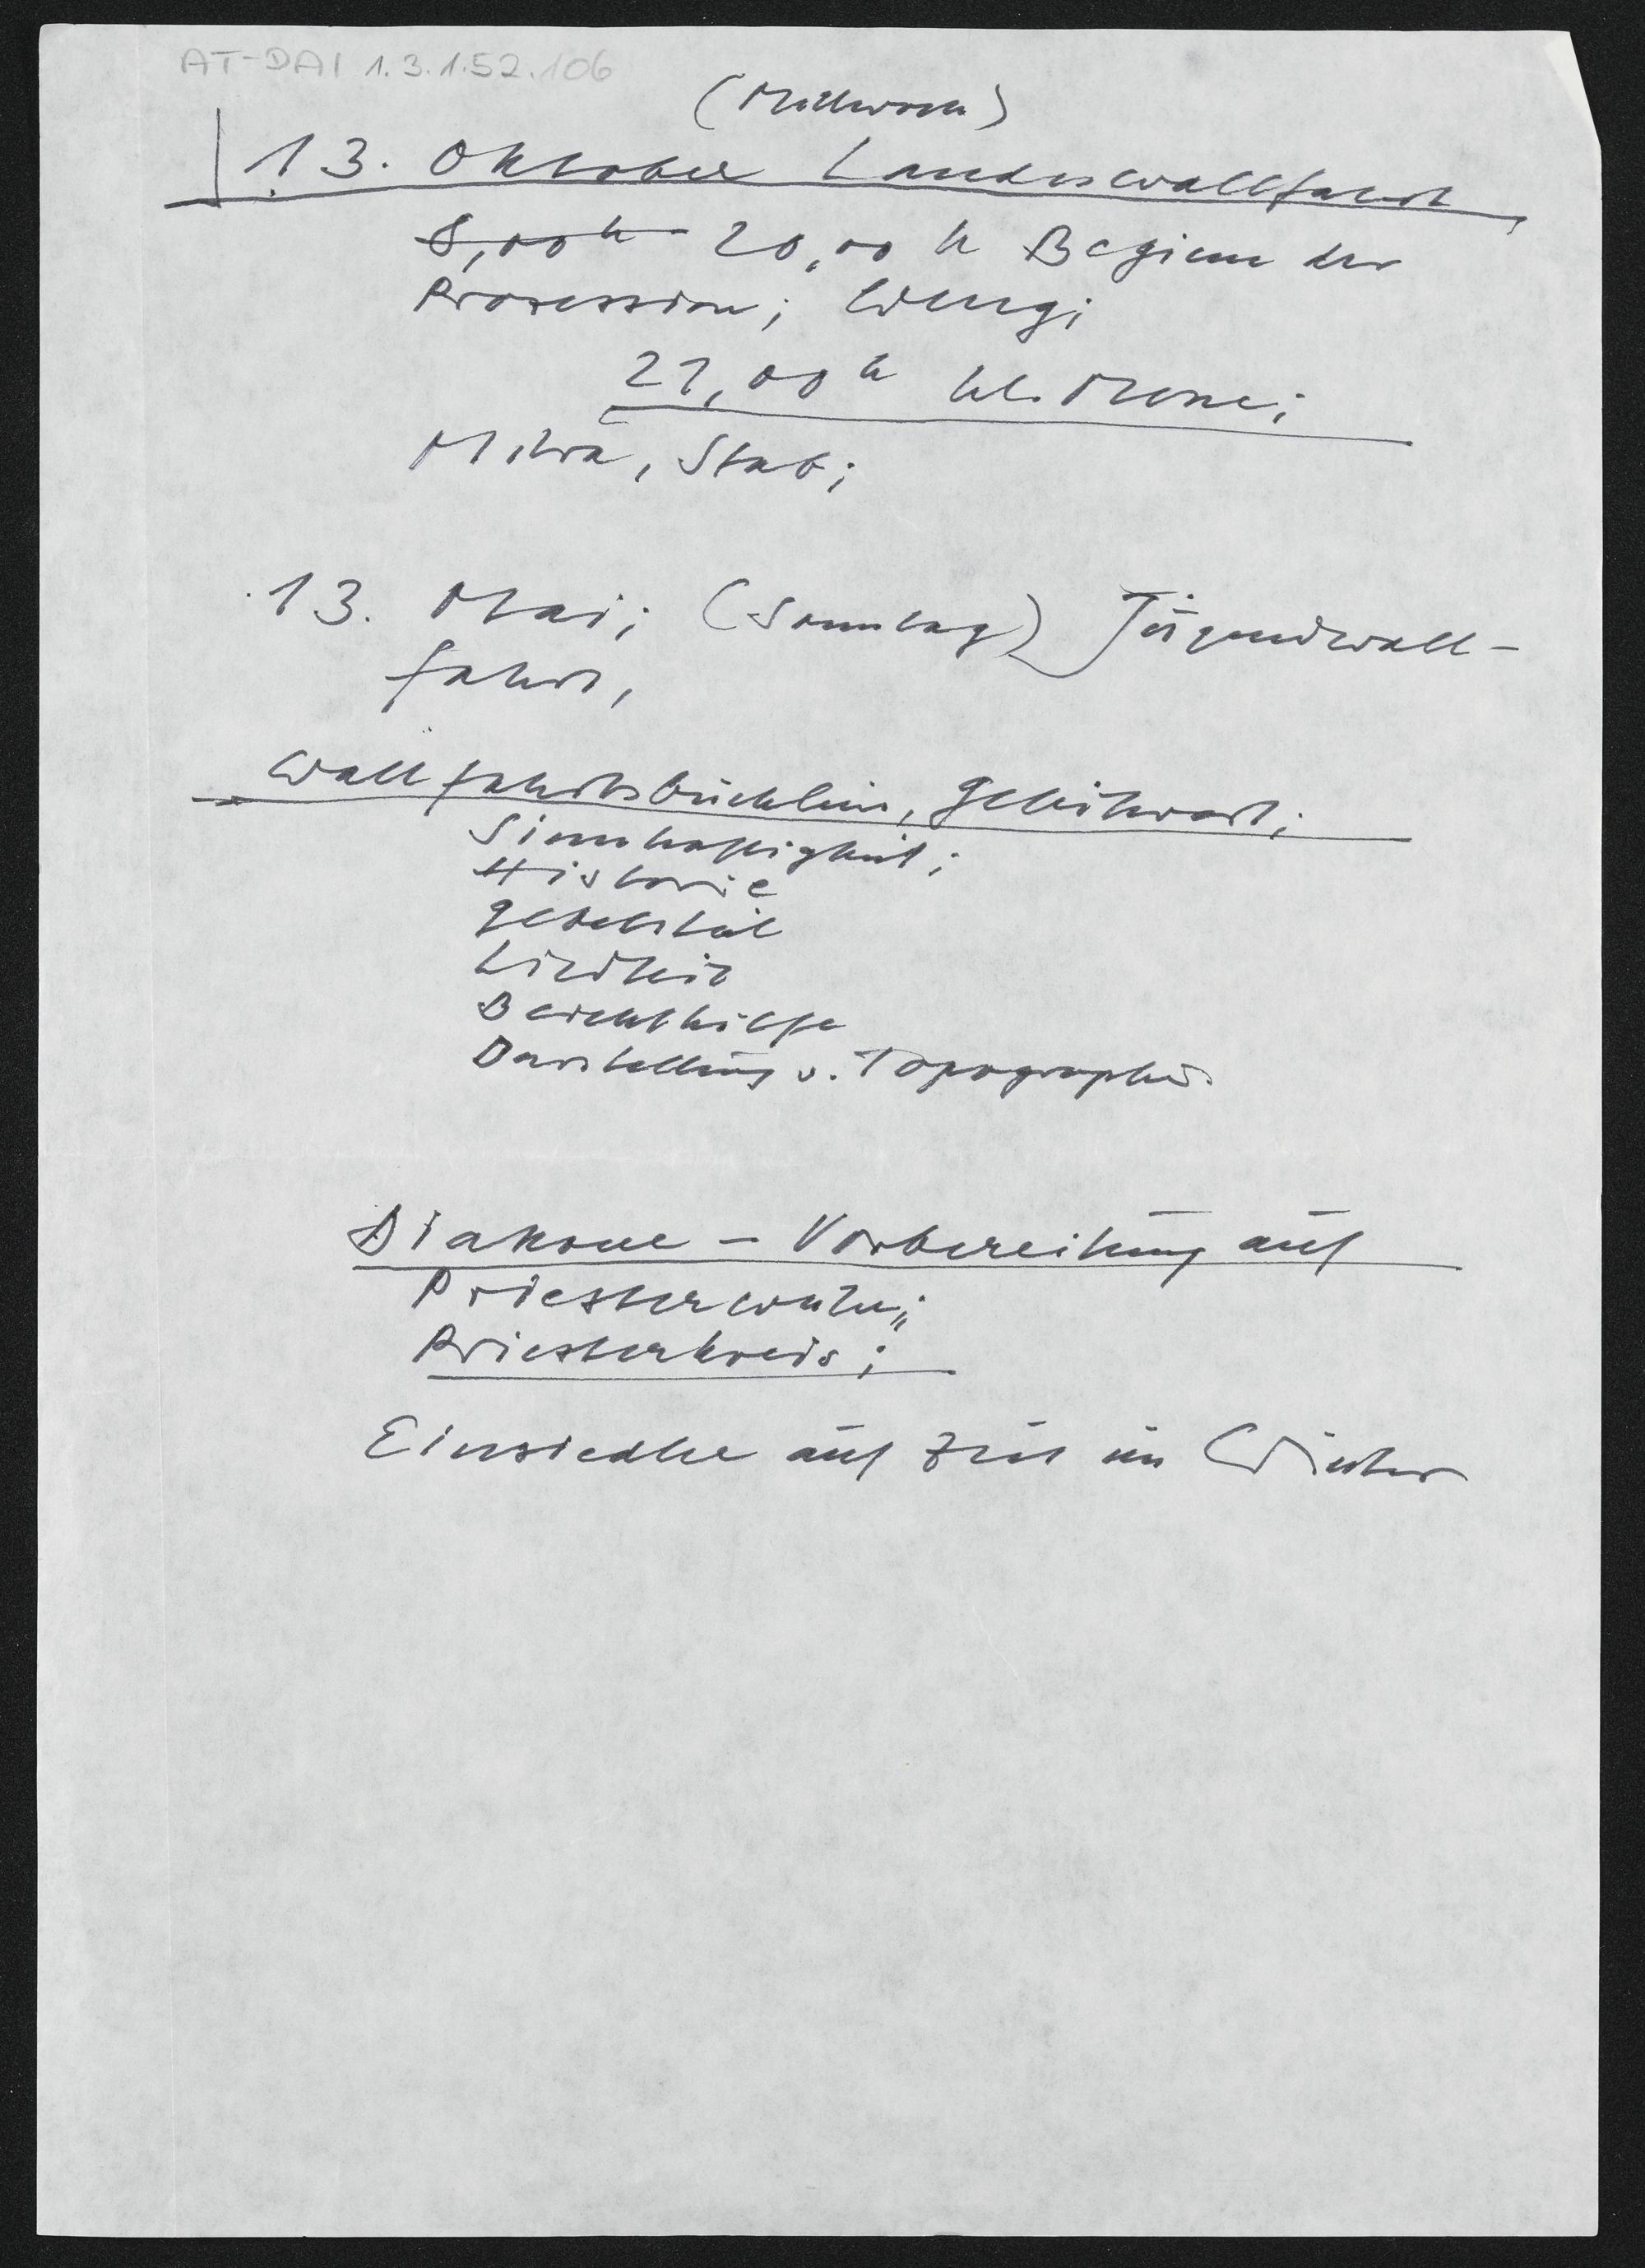 AT-DAI 1.3.1.52.106
(Mittwoch)
13. Oktober Landeswallfahrt,
8,00 h 20,00 h Beginn der
Prozession;
21,00 h hl. Messe;
Mitra, Stab;
13. Mai; (Sonntag) Jugendwall-
fahrt,
Wallfahrtsbüchlein, Geleitwort;
Sinnhaftigkeit;
Historie
Gebetsteil
Liedteil
Beichthilfe
Darstellung v. Topographie
Diakone - Vorbereitung auf
Priesterweihe;
Priesterkreis;
Einsiedler auf Zeit im Winter